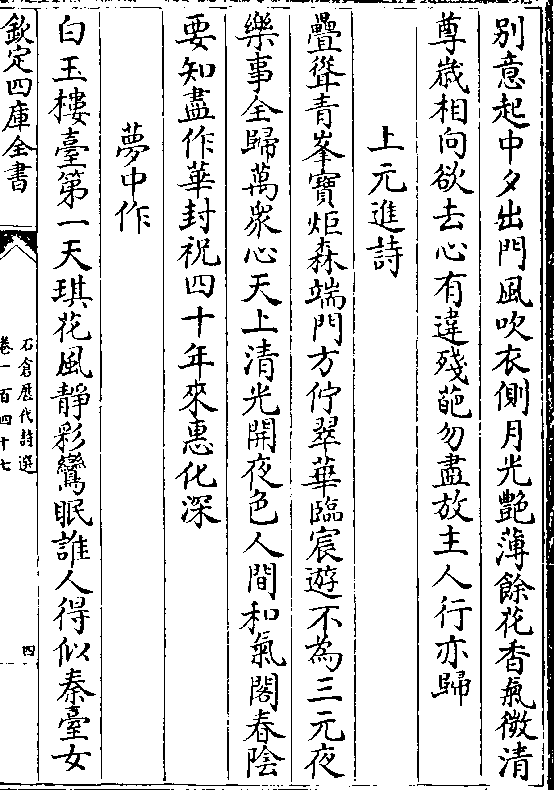 別意起中夕出門風吹衣側月光艷薄餘花香氣微清
尊歲相向欲去心有違殘葩勿盡放主人行亦歸
上元進詩
疊聳青峯寶炬森端門方佇翠華臨宸遊不為三元夜
樂事全歸萬衆心天上清光開夜色人間和氣閣春陰
要知盡作華封祝四十年來惠化深
夢中作
白玉樓臺第一天琪花風靜彩鸞眠誰人得似秦臺女
欽定四庫全書
石倉歴代詩選
卷一百四十七
四